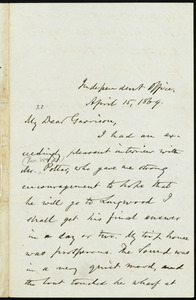 Independent Office,
April 15, 1864.
My Dear Garrison,
I had an ex-
ceedingly pleasant interview with
Mr. Potter, who gave me strong
encouragement to hope that
he will go to Longwood. I
shall get his final answer
in a day or two. My trip home
was prosperous. The Sound was
in a very quiet mood, and
the boat touched the wharf at